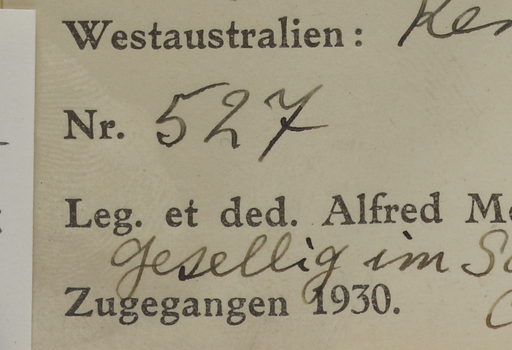 Westaustralien:
Nr. 527
Leg. et ded. Alfred
gesellig im
Zugegangen 1930.